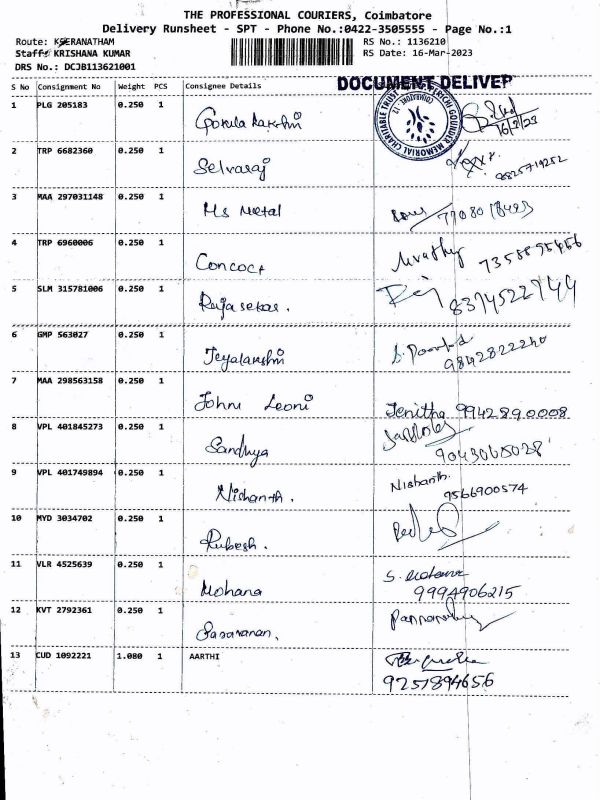 THE PROFESSIONAL COURIERS, Coimbatore
Delivery Runsheet - SPT - Phone No.:0422-3505555 - Page No.:1
Route: KEERANATHAM
RS No.: 1136210
Staff: KRISHANA KUMAR
RS Date: 16-Mar-2023
DRS No.: DCJB113621001
S No Consignment No Weight PCS Consignee Details DOCUMENT DELIVER
1 PLG 205183 0.250 1 Gokula Lakshmi
2 TRP 6682360 0.250 1 Selvaraj
3 MAA 297031148 0.250 1 Ms Metal
4 TRP 6960006 0.250 1 Concoct
5 SLM 315781006 0.250 1 Rajasekar.
6 GMP 563027 0.250 1 Jeyalakshmi 9842822240
7 MAA 298563158 0.250 1 Johni Leoni Jenitha 9942890008
8 VPL 401845273 0.250 1 Sandhya
9 VPL 401749894 0.250 1 Nishanth. Nishanth. 9566900574
10 MYD 3034702 0.250 1 Rubesh.
11 VLR 4525639 0.250 1 Mohana S. Mohana 9994906215
12 KVT 2792361 0.250 1 Saravanan.
13 CUD 1092221 1.080 1 AARTHI 9251894656